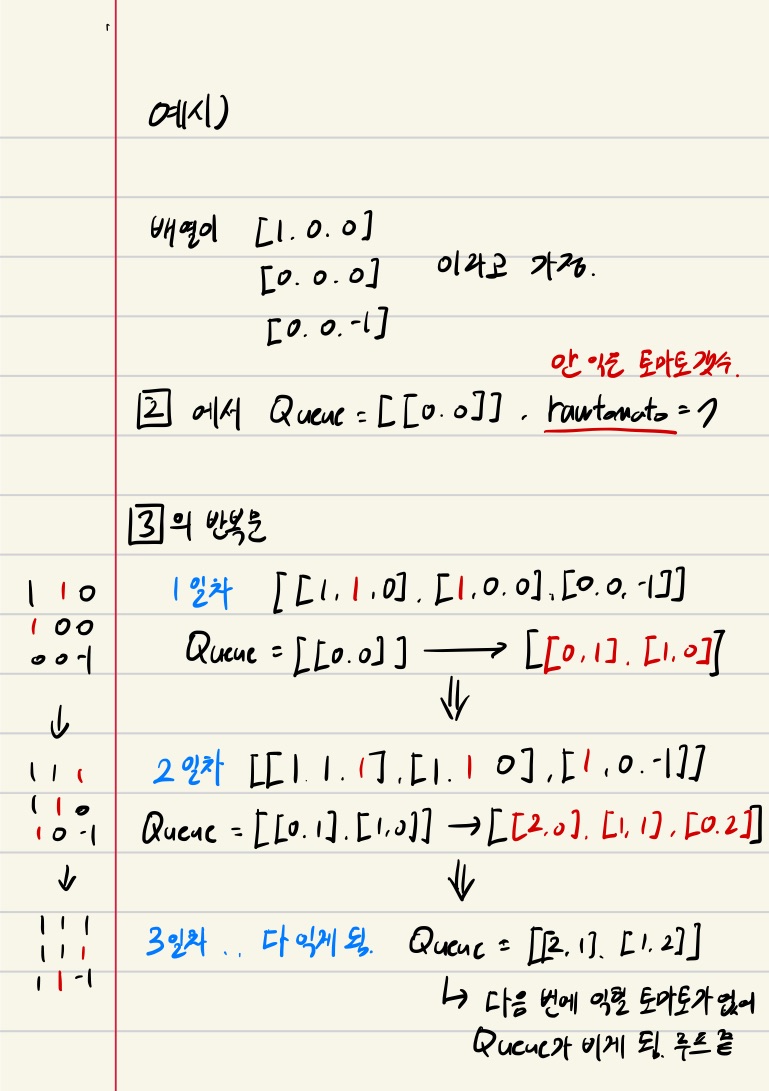 예시)
배열이 [1. 0. 0]
[0. 0. 0] 이라고 가정.
[0. 0. -1]
안 익은 토마토갯수.
2 에서 Queue = [[0.0]] . rawtomato = 7
3 의 반복문
1 1 0
1 0 0
0 0 -1
1일차 [[1, 1, 0], [1, 0. 0], [0. 0, -1]]
Queue = [[0.0]] → [[0, 1]. [1, 0]]
⇓
↓
1 1 1
1 1 0
1 0 -1
2일차 [[1. 1. 1], [1. 1 0], [1, 0. -1]]
Queue = [[0. 1]. [1, 0]] → [[2, 0]. [1, 1], [0. 2]]
⇓
↓
1 1 1
1 1 1
1 1 -1
3일차 . . 다 익게 됨. Queue = [[2, 1]. [1, 2]]
↳ 다음 번에 익힐 토마토가 없어
Queue가 비게 됨. 루프 끝